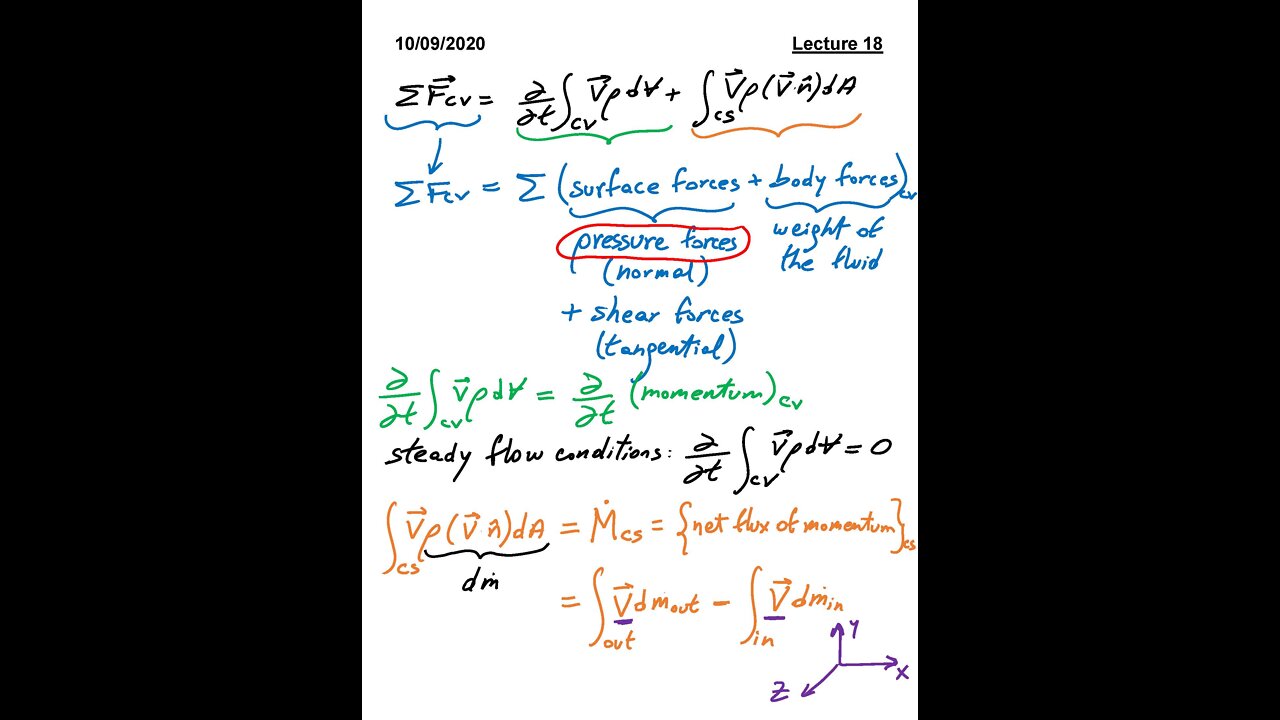 10/09/2020 Lecture 18
ΣF⃗cv = ∂/∂t ∫cv V⃗ρdV̶ + ∫cs V⃗ρ(V⃗·n̂)dA
ΣF⃗cv = Σ (surface forces + body forces)cv
pressure forces weight of
(normal) the fluid
+ shear forces
(tangential)
∂/∂t ∫cv V⃗ρdV̶ = ∂/∂t (momentum)cv
steady flow conditions: ∂/∂t ∫cv V⃗ρdV̶ = 0
∫cs V⃗ρ(V⃗·n̂)dA = Ṁcs = {net flux of momentum}cs
dṁ
= ∫out V⃗dṁout − ∫in V⃗dṁin
Y
X
Z